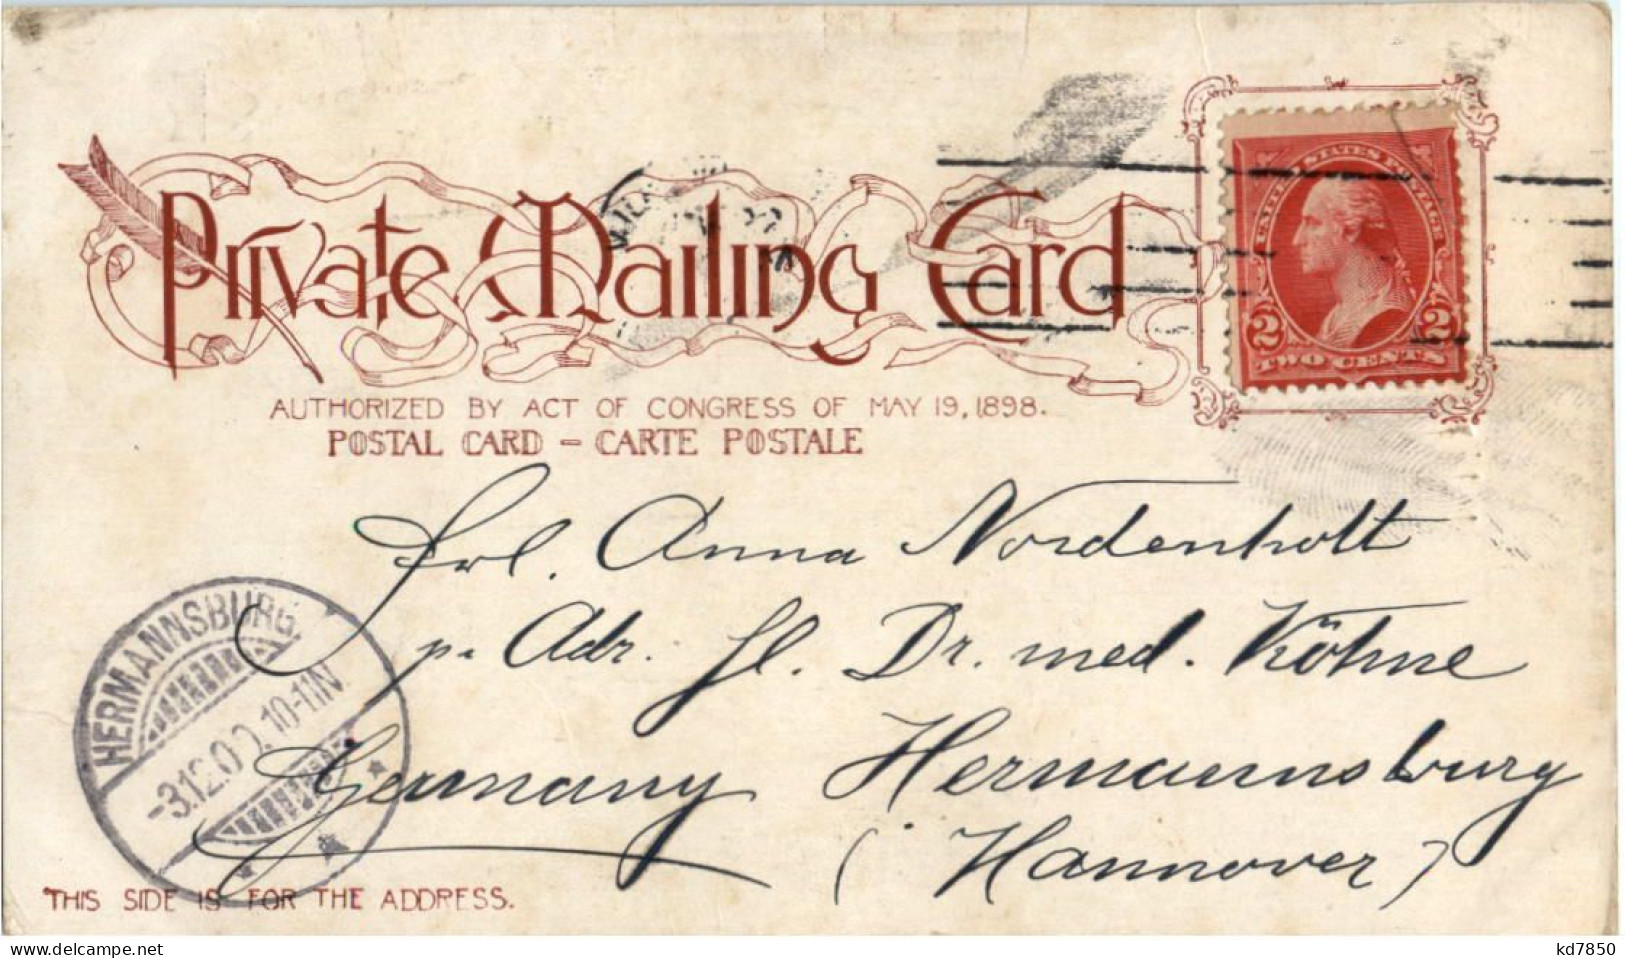 Private Mailing Card
AUTHORIZED BY ACT OF CONGRESS OF MAY 19, 1898.
POSTAL CARD – CARTE POSTALE
UNITED STATES POSTAGE
2 2
TWO CENTS
Frl. Anna Nordenholt
p. Adr. Hl. Dr. med. Köhne
Hermannsburg
Germany (Hannover)
HERMANNSBURG.
-3.12.00. 10-11N
THIS SIDE IS FOR THE ADDRESS.
www.delcampe.net
kd7850